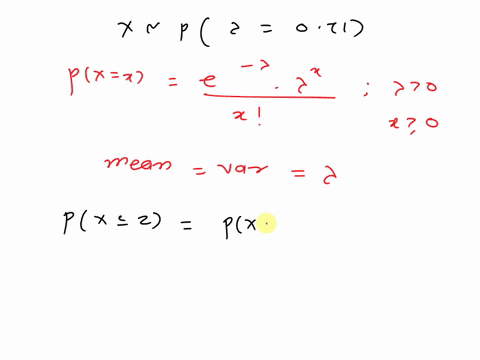 x ~ p( λ = 0.21)
p(x=x) = e^-λ . λ^x / x! ; λ>0
x≥0
mean = var = λ
p(x ≤ 2) = p(x